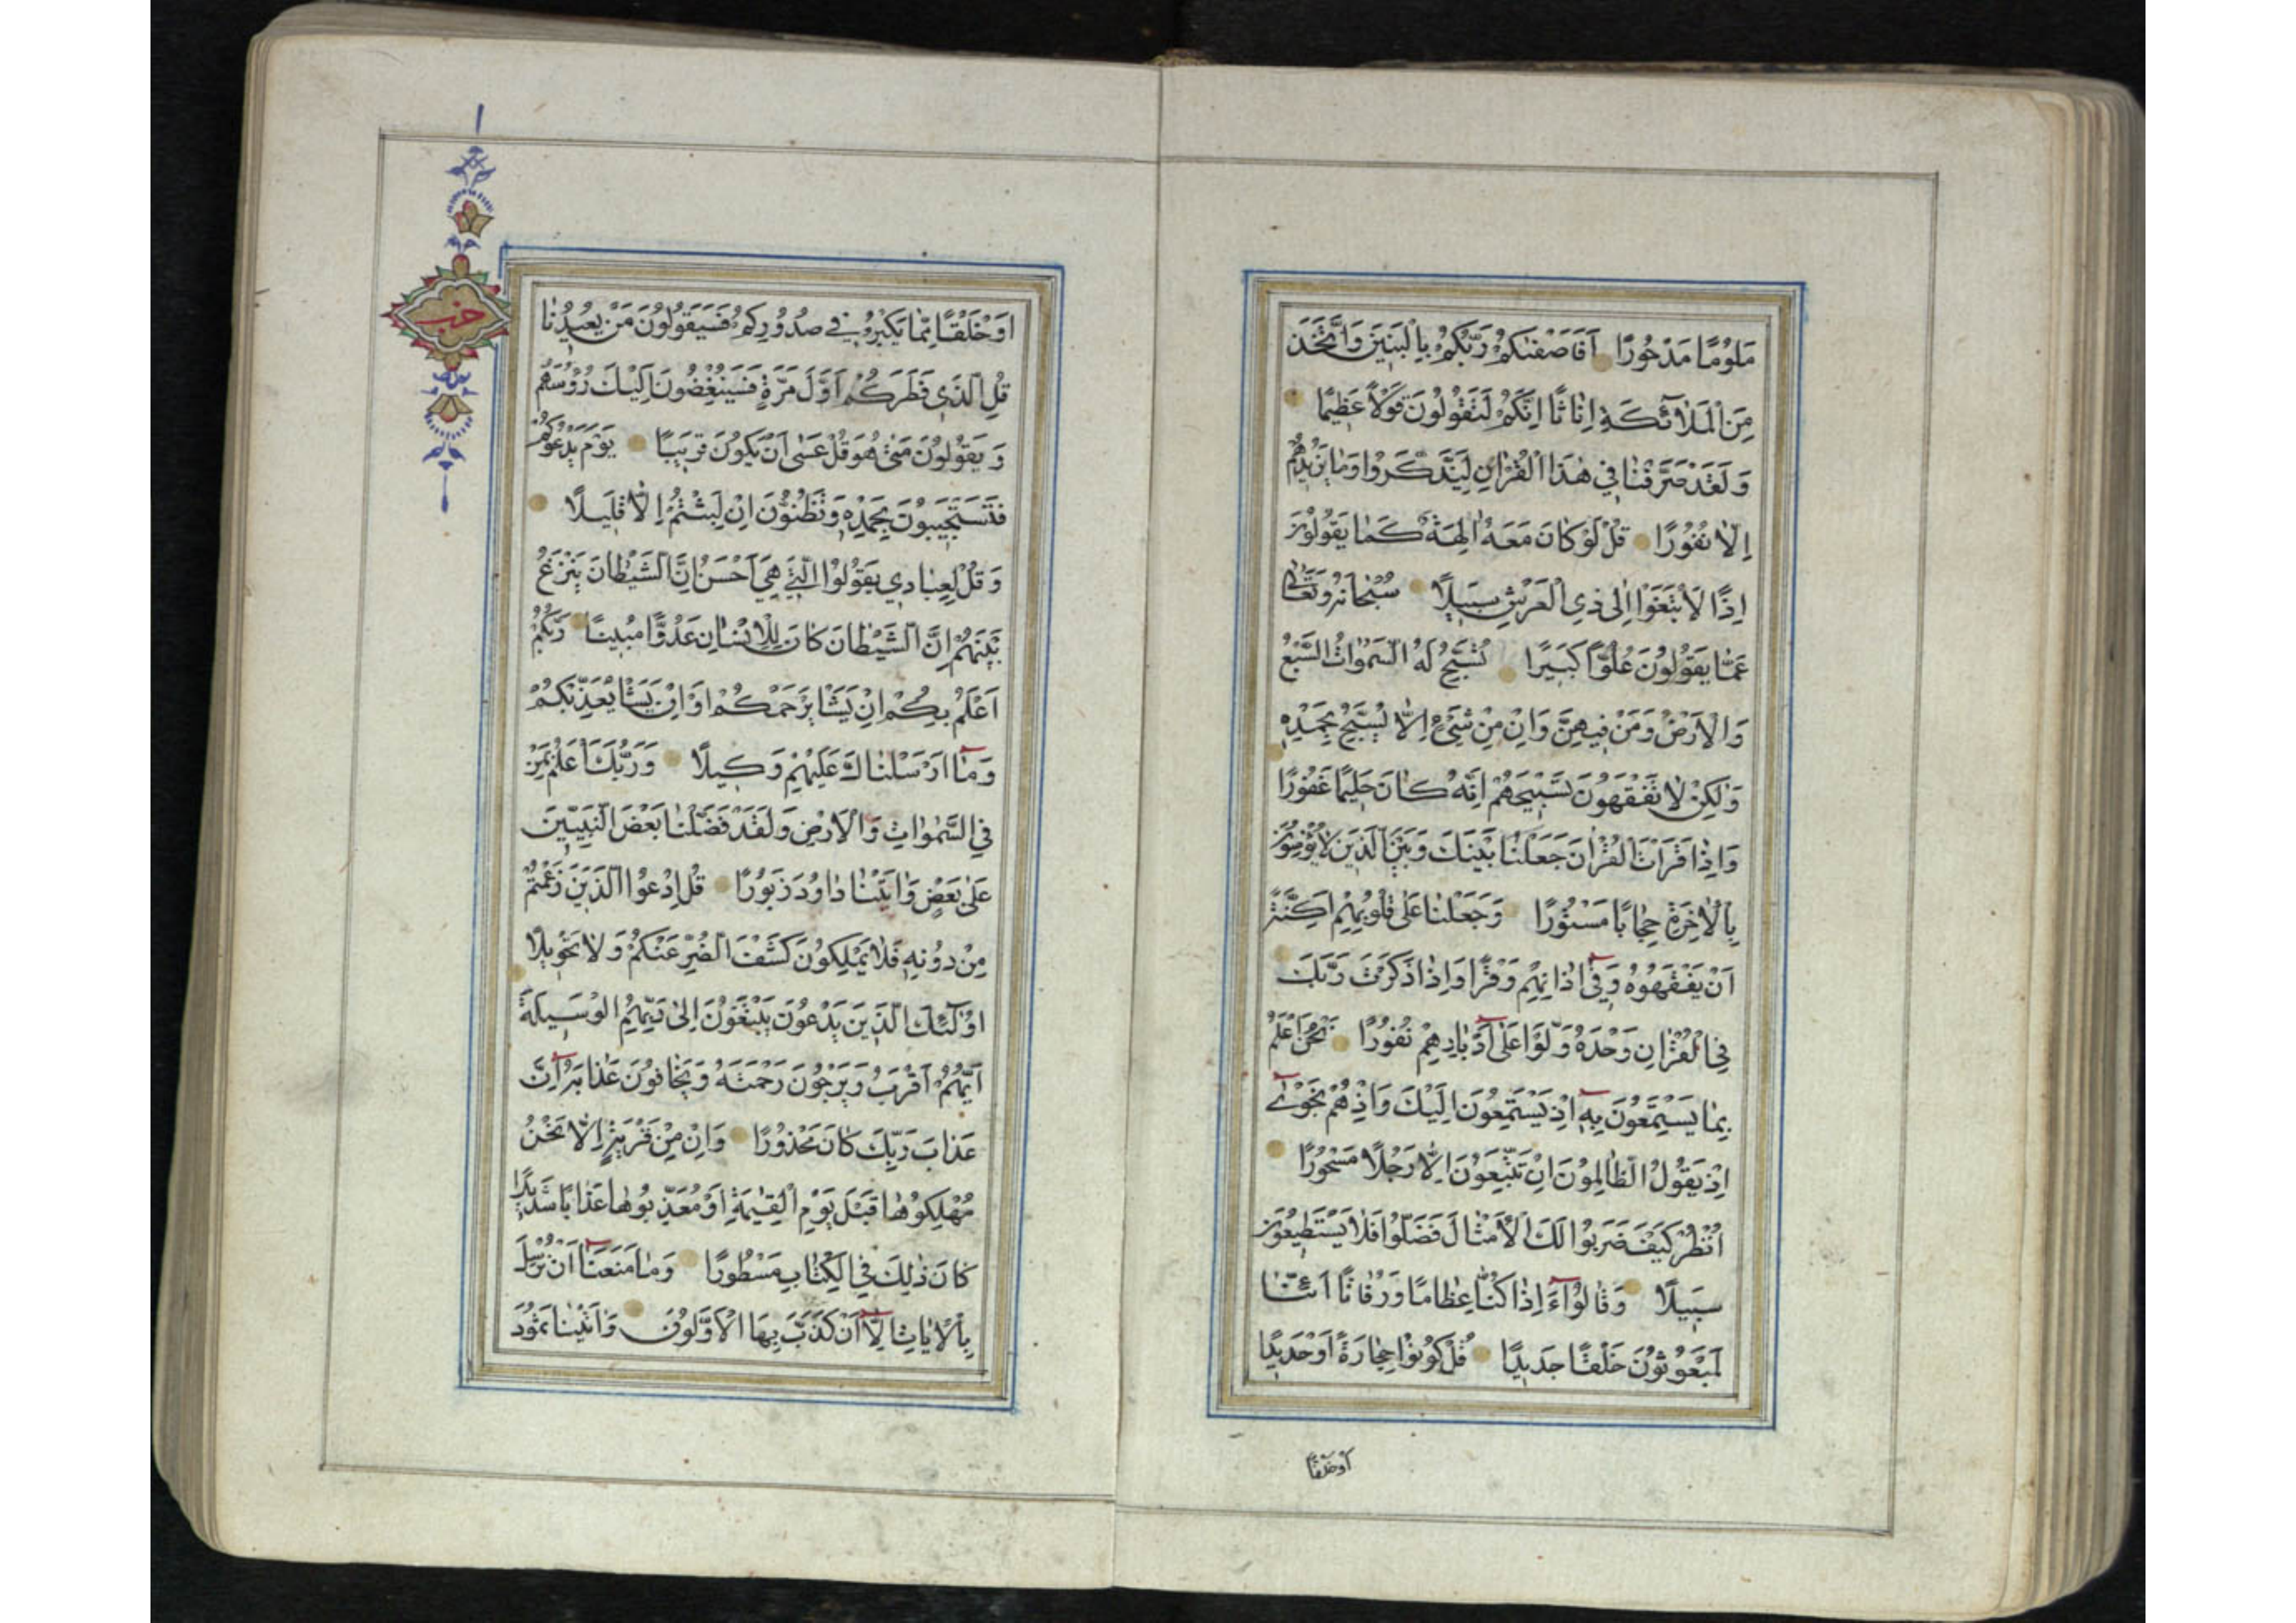 مَلُومًا مَدْحُورًا اَفَاَصْفٰيكُمْ رَبُّكُمْ بِالْبَنِينَ وَاتَّخَذَ
مِنَ الْمَلٰٓائِكَةِ اِنَاثًا اِنَّكُمْ لَتَقُولُونَ قَوْلًا عَظِيمًا
وَلَقَدْ صَرَّفْنَا فِي هٰذَا الْقُرْاٰنِ لِيَذَّكَّرُوا وَمَا يَزِيدُهُمْ
اِلَّا نُفُورًا قُلْ لَوْ كَانَ مَعَهُ اٰلِهَةٌ كَمَا يَقُولُونَ
اِذًا لَابْتَغَوْا اِلٰى ذِي الْعَرْشِ سَبِيلًا سُبْحَانَهُ وَتَعَالٰى
عَمَّا يَقُولُونَ عُلُوًّا كَبِيرًا تُسَبِّحُ لَهُ السَّمٰوَاتُ السَّبْعُ
وَالْاَرْضُ وَمَنْ فِيهِنَّ وَاِنْ مِنْ شَيْءٍ اِلَّا يُسَبِّحُ بِحَمْدِهِ
وَلٰكِنْ لَا تَفْقَهُونَ تَسْبِيحَهُمْ اِنَّهُ كَانَ حَلِيمًا غَفُورًا
وَاِذَا قَرَاْتَ الْقُرْاٰنَ جَعَلْنَا بَيْنَكَ وَبَيْنَ الَّذِينَ لَا يُؤْمِنُونَ
بِالْاٰخِرَةِ حِجَابًا مَسْتُورًا وَجَعَلْنَا عَلٰى قُلُوبِهِمْ اَكِنَّةً
اَنْ يَفْقَهُوهُ وَفِٓي اٰذَانِهِمْ وَقْرًا وَاِذَا ذَكَرْتَ رَبَّكَ
فِي الْقُرْاٰنِ وَحْدَهُ وَلَّوْا عَلٰٓى اَدْبَارِهِمْ نُفُورًا نَحْنُ اَعْلَمُ
بِمَا يَسْتَمِعُونَ بِهِٓ اِذْ يَسْتَمِعُونَ اِلَيْكَ وَاِذْ هُمْ نَجْوٰٓى
اِذْ يَقُولُ الظَّالِمُونَ اِنْ تَتَّبِعُونَ اِلَّا رَجُلًا مَسْحُورًا
اُنْظُرْ كَيْفَ ضَرَبُوا لَكَ الْاَمْثَالَ فَضَلُّوا فَلَا يَسْتَطِيعُونَ
سَبِيلًا وَقَالُٓوا ءَاِذَا كُنَّا عِظَامًا وَرُفَاتًا اَئِنَّا
لَمَبْعُوثُونَ خَلْقًا جَدِيدًا قُلْ كُونُوا حِجَارَةً اَوْ حَدِيدًا
اَوْ خَلْقًا
حزب
اَوْ خَلْقًا مِمَّا يَكْبُرُ فِي صُدُورِكُمْ فَسَيَقُولُونَ مَنْ يُعِيدُنَا
قُلِ الَّذِي فَطَرَكُمْ اَوَّلَ مَرَّةٍ فَسَيُنْغِضُونَ اِلَيْكَ رُؤُسَهُمْ
وَيَقُولُونَ مَتٰى هُوَ قُلْ عَسٰى اَنْ يَكُونَ قَرِيبًا يَوْمَ يَدْعُوكُمْ
فَتَسْتَجِيبُونَ بِحَمْدِهِ وَتَظُنُّونَ اِنْ لَبِثْتُمْ اِلَّا قَلِيلًا
وَقُلْ لِعِبَادِي يَقُولُوا الَّتِي هِيَ اَحْسَنُ اِنَّ الشَّيْطَانَ يَنْزَغُ
بَيْنَهُمْ اِنَّ الشَّيْطَانَ كَانَ لِلْاِنْسَانِ عَدُوًّا مُبِينًا رَبُّكُمْ
اَعْلَمُ بِكُمْ اِنْ يَشَاْ يَرْحَمْكُمْ اَوْ اِنْ يَشَاْ يُعَذِّبْكُمْ
وَمَٓا اَرْسَلْنَاكَ عَلَيْهِمْ وَكِيلًا وَرَبُّكَ اَعْلَمُ بِمَنْ
فِي السَّمٰوَاتِ وَالْاَرْضِ وَلَقَدْ فَضَّلْنَا بَعْضَ النَّبِيِّينَ
عَلٰى بَعْضٍ وَاٰتَيْنَا دَاوُدَ زَبُورًا قُلِ ادْعُوا الَّذِينَ زَعَمْتُمْ
مِنْ دُونِهِ فَلَا يَمْلِكُونَ كَشْفَ الضُّرِّ عَنْكُمْ وَلَا تَحْوِيلًا
اُولٰٓئِكَ الَّذِينَ يَدْعُونَ يَبْتَغُونَ اِلٰى رَبِّهِمُ الْوَسِيلَةَ
اَيُّهُمْ اَقْرَبُ وَيَرْجُونَ رَحْمَتَهُ وَيَخَافُونَ عَذَابَهُٓ اِنَّ
عَذَابَ رَبِّكَ كَانَ مَحْذُورًا وَاِنْ مِنْ قَرْيَةٍ اِلَّا نَحْنُ
مُهْلِكُوهَا قَبْلَ يَوْمِ الْقِيٰمَةِ اَوْ مُعَذِّبُوهَا عَذَابًا شَدِيدًا
كَانَ ذٰلِكَ فِي الْكِتَابِ مَسْطُورًا وَمَا مَنَعَنَٓا اَنْ نُرْسِلَ
بِالْاٰيَاتِ اِلَّٓا اَنْ كَذَّبَ بِهَا الْاَوَّلُونَ وَاٰتَيْنَا ثَمُودَ